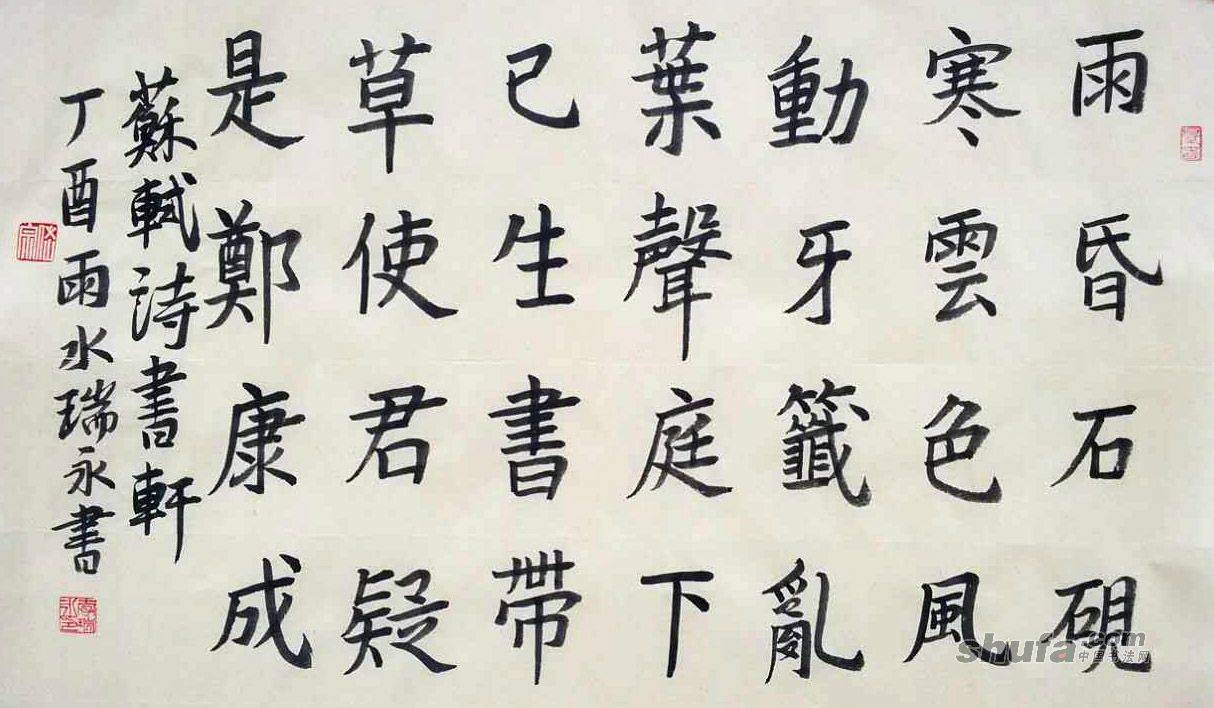 雨昏石硯
寒雲色風
動牙籤亂
葉聲庭下
已生書帶
草使君疑
是鄭康成
蘇軾詩書軒
丁酉雨水瑞永書
shufa.com
中国书法网